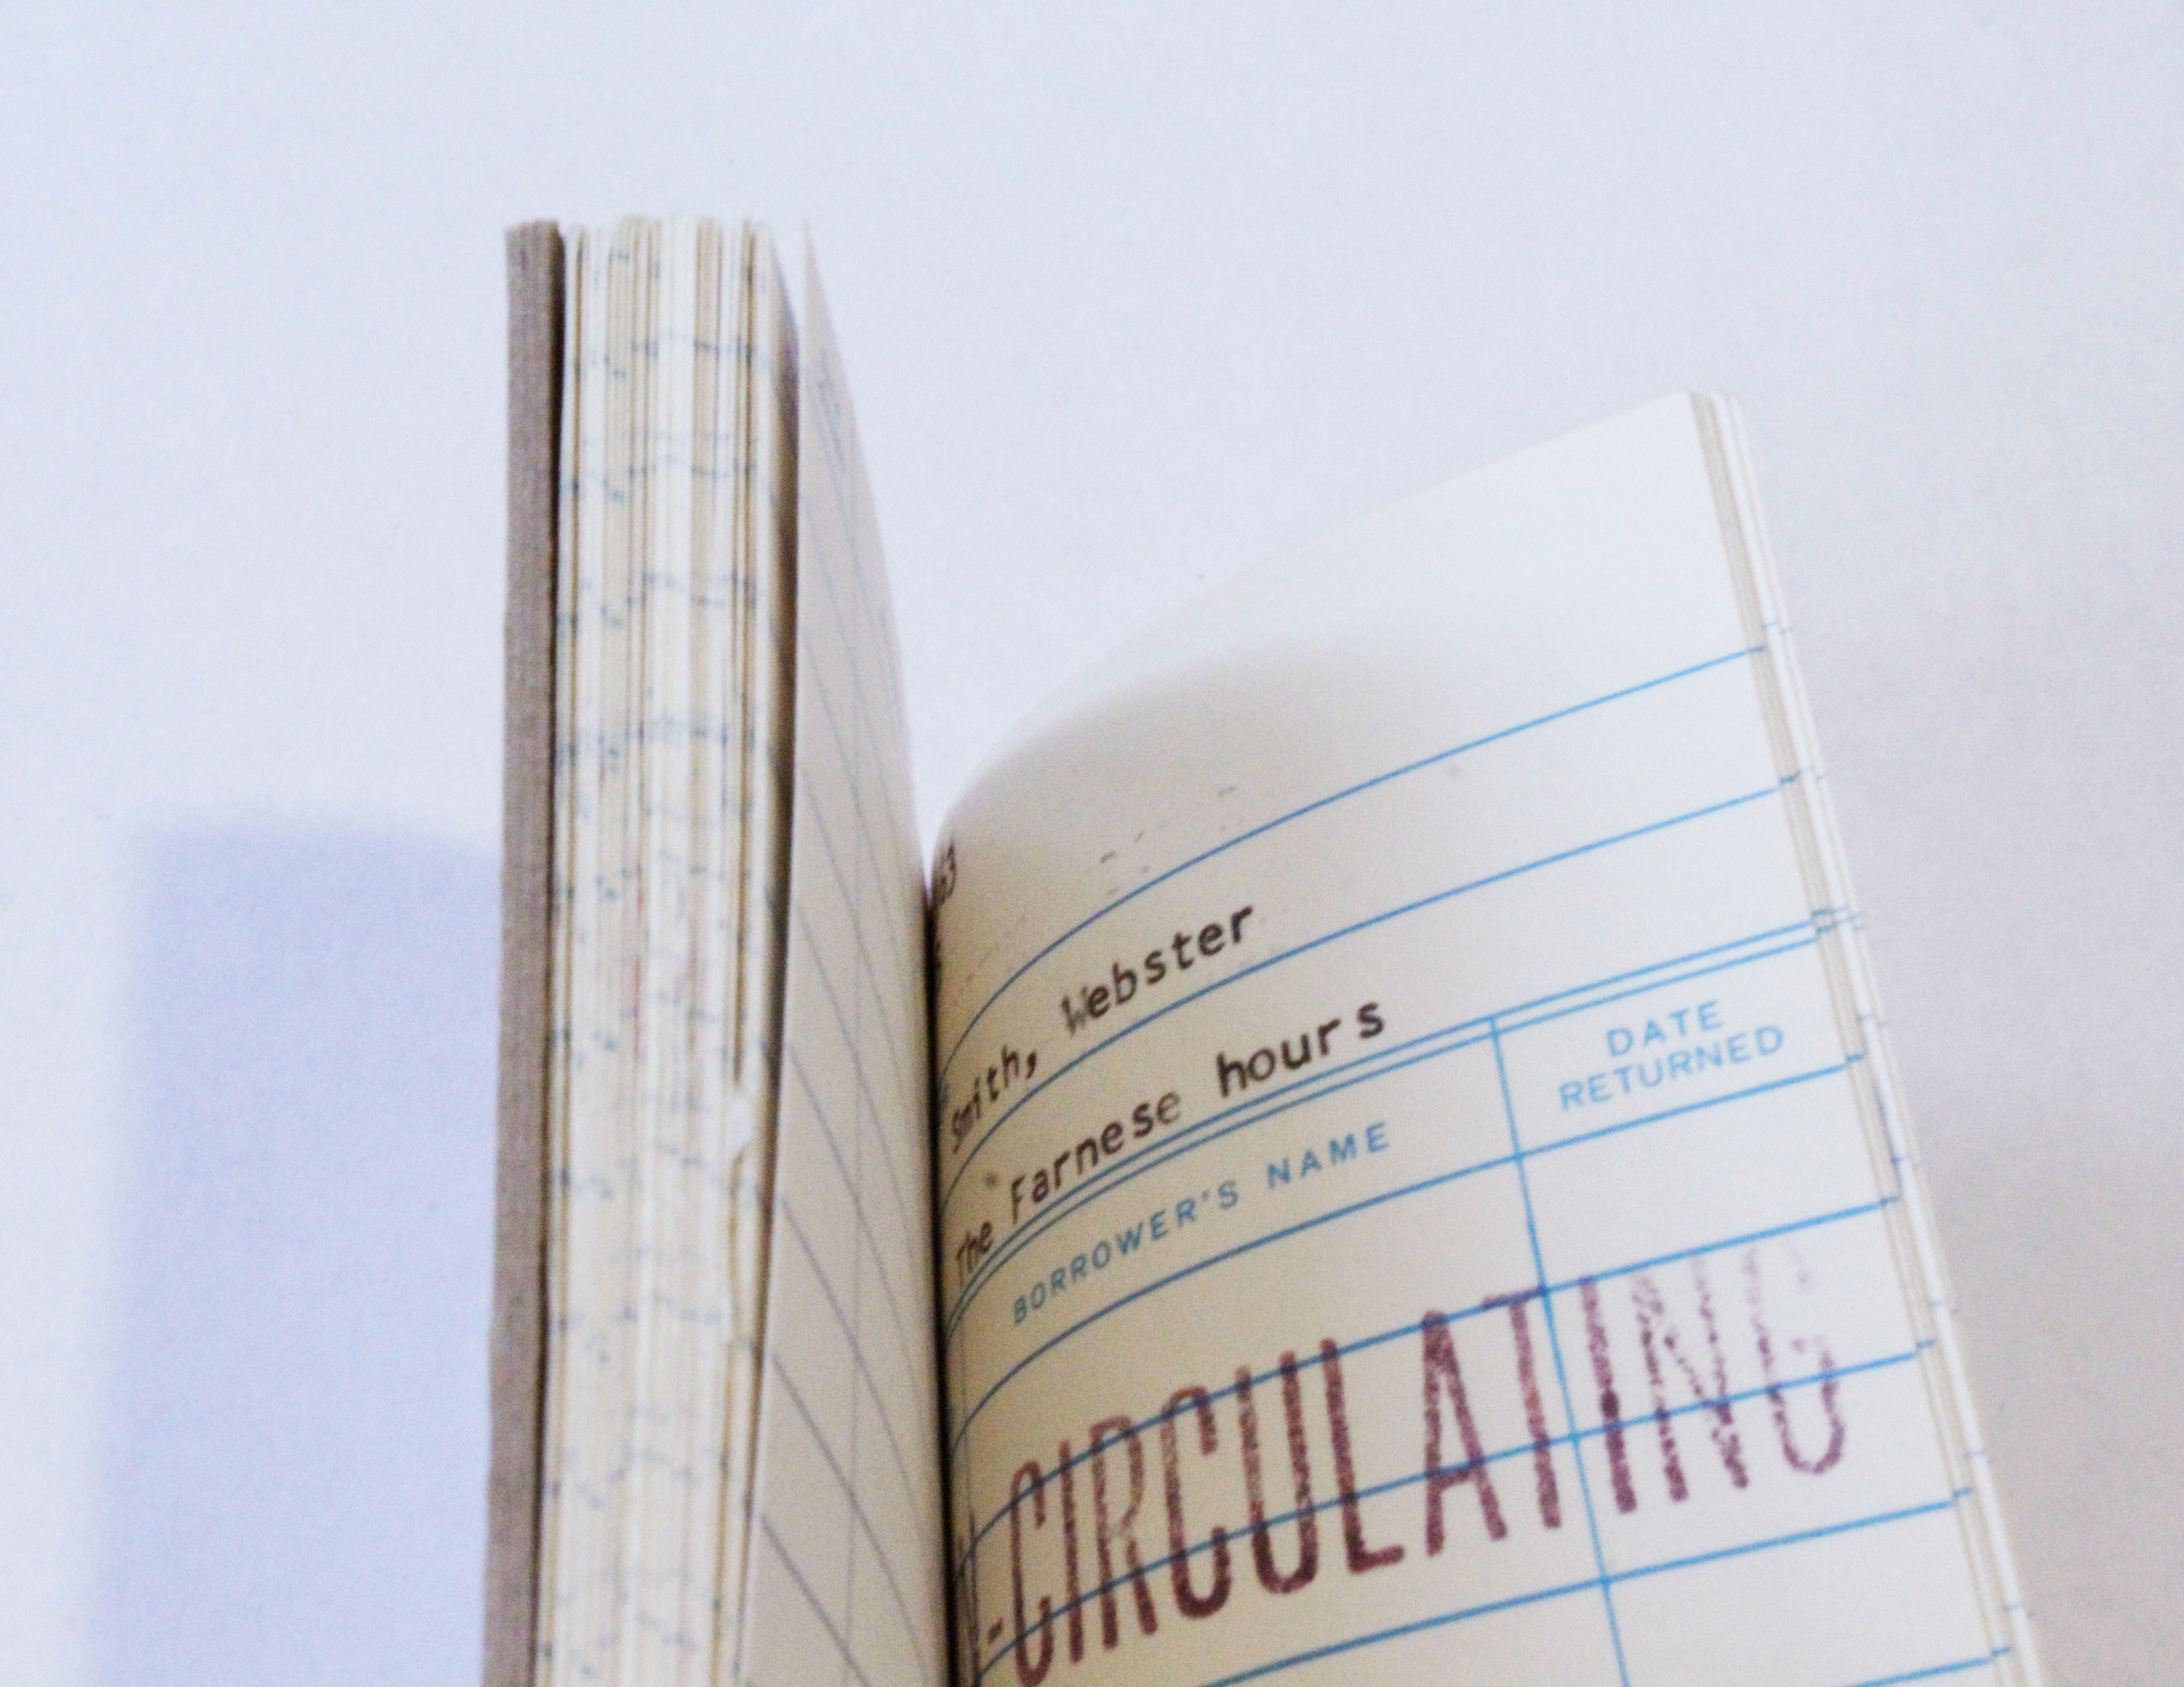 63
Smith, Webster
The Farnese hours
BORROWER'S NAME
DATE
RETURNED
-CIRCULATING